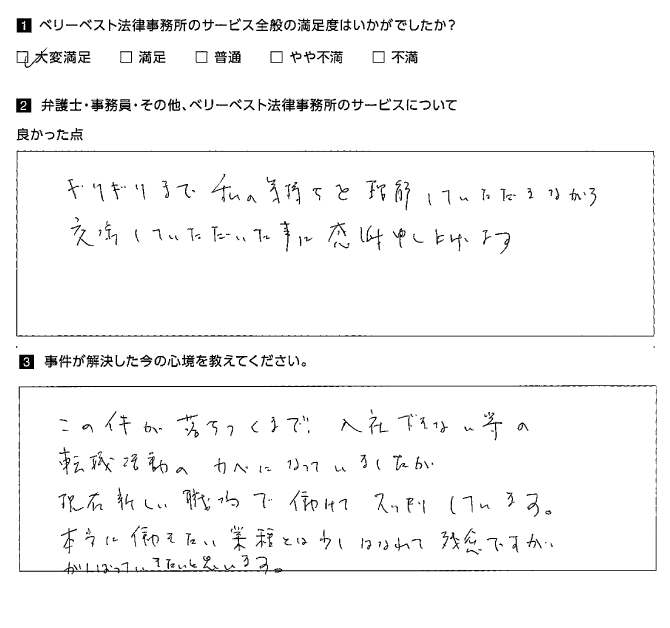 1 ベリーベスト法律事務所のサービス全般の満足度はいかがでしたか？
☑ 大変満足 □ 満足 □ 普通 □ やや不満 □ 不満
2 弁護士・事務員・その他、ベリーベスト法律事務所のサービスについて
良かった点
ギリギリまで 私の気持ちを理解していただきながら
交渉していただいた事に感謝申し上げます
3 事件が解決した今の心境を教えてください。
この件が落ちつくまで、入社できない等の
転職活動のカベになっていましたが
現在新しい職場で働けてスッキリしています。
本当に働きたい業種とは少しはなれて残念ですが、
がんばっていきたいと思います。